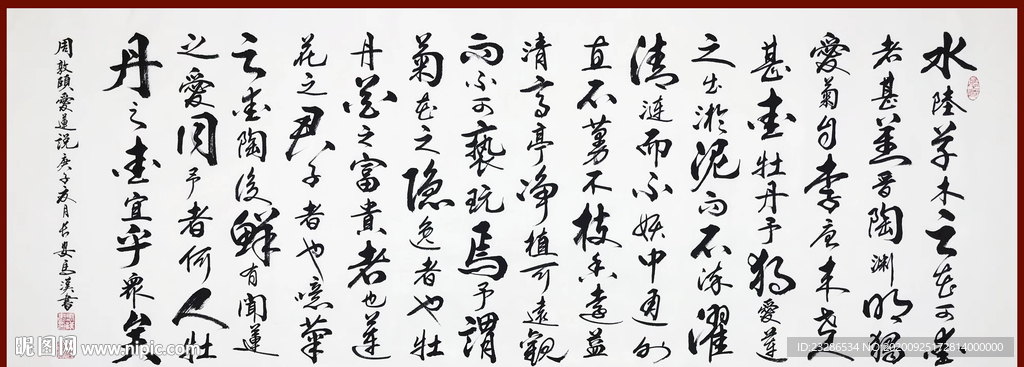 水陸草木之花可愛
者甚蕃晋陶淵明獨
愛菊自李唐来世人
甚愛牡丹予獨愛蓮
之出淤泥而不染濯
清漣而不妖中通外
直不蔓不枝香遠益
清亭亭净植可遠觀
而不可褻玩焉予謂
菊花之隱逸者也牡
丹花之富貴者也蓮
花之君子者也噫菊
之愛陶後鮮有聞蓮
之愛同予者何人牡
丹之愛宜乎衆矣
周敦頤愛蓮説庚子夏月長安漢書
昵图网 www.nipic.com
ID:23286534 NO:20200925172814000000